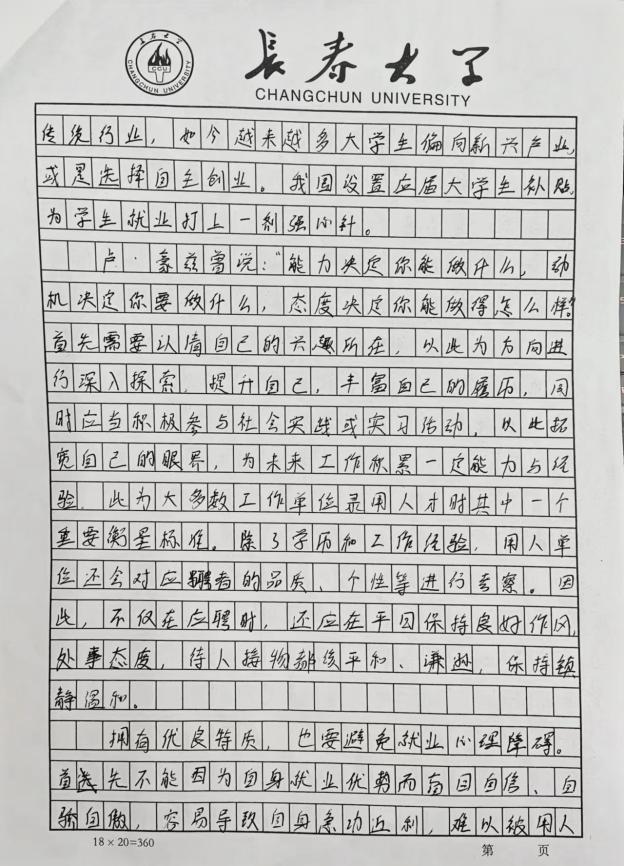 長春大学
CHANGCHUN UNIVERSITY
长春大学
CCU
CHANGCHUN UNIVERSITY
传统行业，如今越来越多大学生偏向新兴产业，
或是选择自主创业。我国设置应届大学生补贴，
为学生就业打上一剂强心针。
卢·豪兹曾说：“能力决定你能做什么，动
机决定你要做什么，态度决定你能做得怎么样。”
首先需要认清自己的兴趣所在，以此为方向进
行深入探索，提升自己，丰富自己的履历，同
时应当积极参与社会实践或实习活动，以此拓
宽自己的眼界，为未来工作积累一定能力与经
验，此为大多数工作单位录用人才时其中一个
重要衡量标准。除了学历和工作经验，用人单
位还会对应聘者的品质、个性等进行考察。因
此，不仅在应聘时，还应在平日保持良好作风，
处事态度，待人接物都该平和、谦逊，保持镇
静温和。
拥有优良特质，也要避免就业心理障碍。
首先不能因为自身就业优势而盲目自信、自
骄自傲，容易导致自身急功近利，难以被用人
18×20=360
第 页